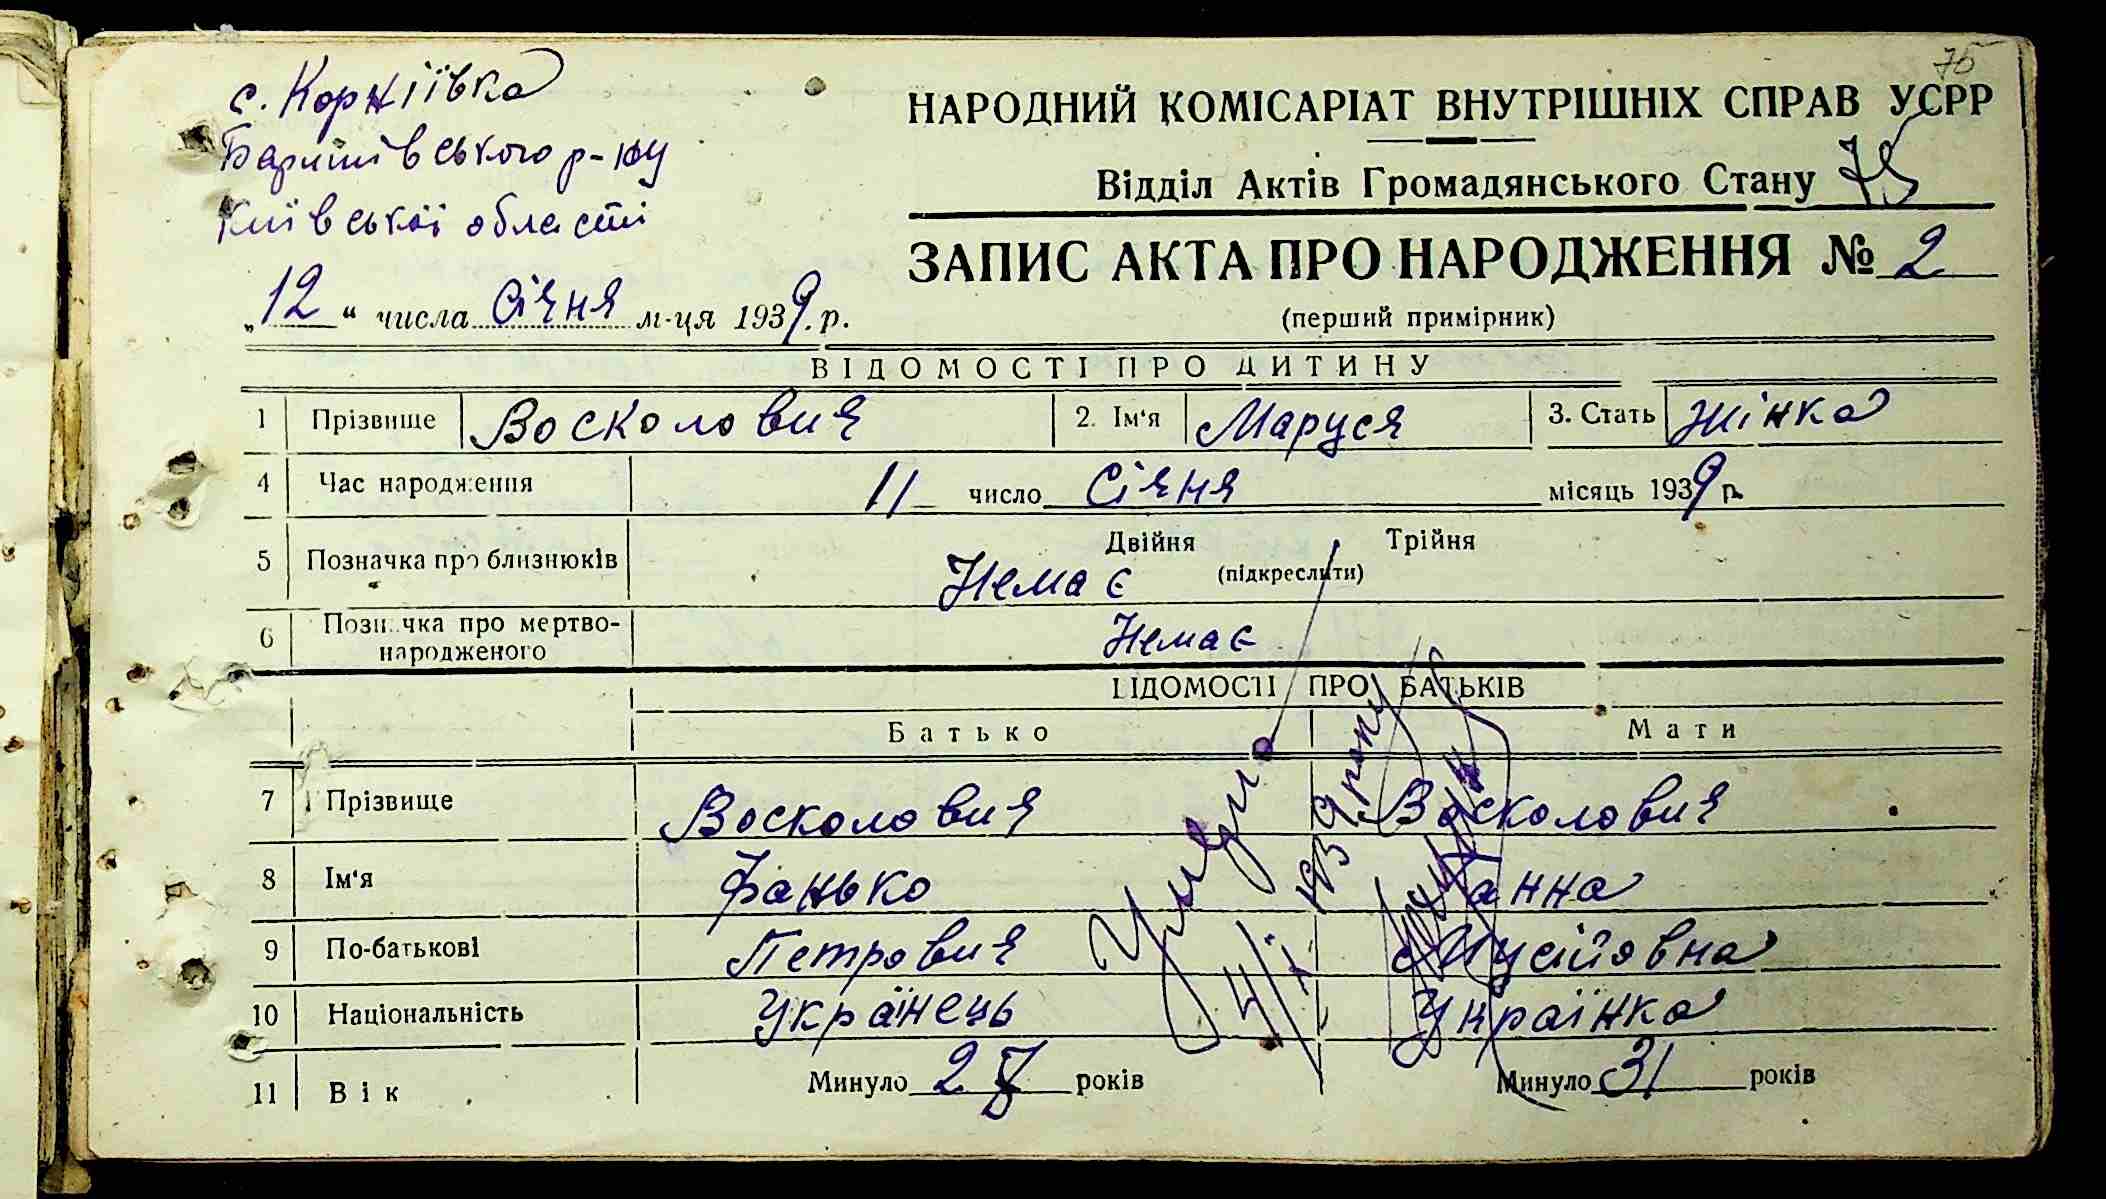 75
с. Коржіївка
Баришівського р-ну
Київської області
НАРОДНИЙ КОМІСАРІАТ ВНУТРІШНІХ СПРАВ УСРР
Відділ Актів Громадянського Стану 75
ЗАПИС АКТА ПРО НАРОДЖЕННЯ № 2
(перший примірник)
„12“ числа Січня м-ця 1939.р.
ВІДОМОСТІ ПРО ДИТИНУ
1 Прізвище Восколович 2. Ім'я Маруся 3. Стать жінка
4 Час народження 11 число Січня місяць 1939 р.
5 Позначка про близнюків Двійня Трійня
(підкреслити)
Немає
6 Позначка про мертво-
народженого Немає
ВІДОМОСТІ ПРО БАТЬКІВ
Батько Мати
7 Прізвище Восколович Восколович
8 Ім'я Фанько Ганна
9 По-батькові Петрович Мусійовна
10 Національність Українець Українка
11 Вік Минуло 28 років Минуло 31 років